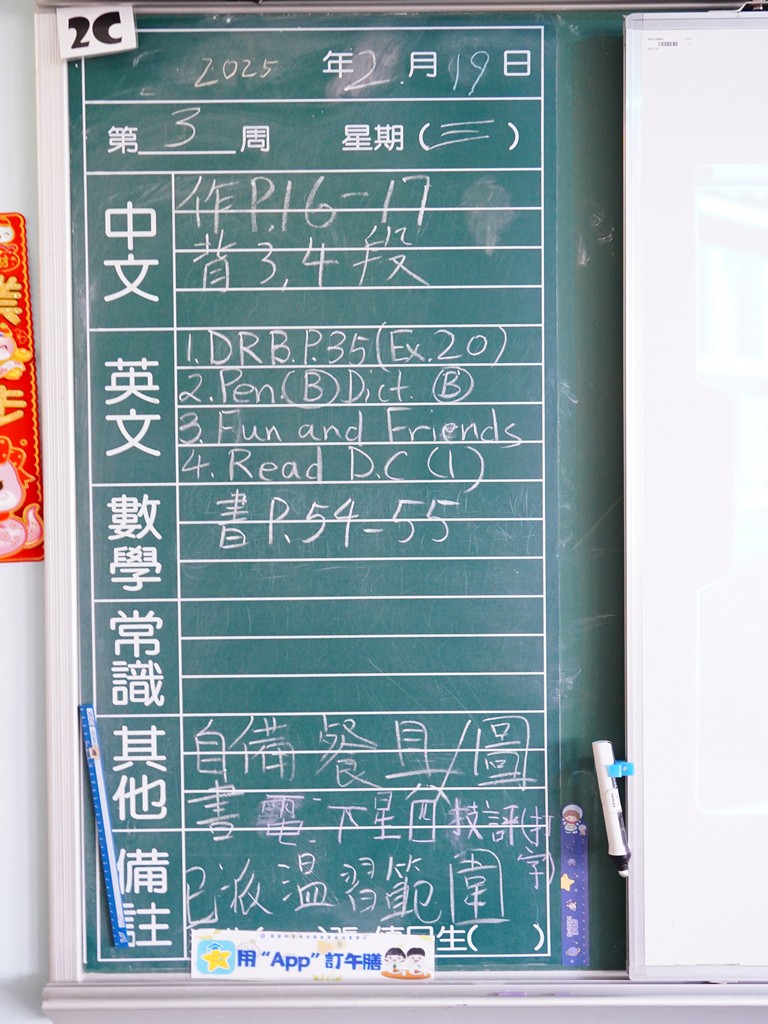 2C
2025 年 2 月 19 日
第 3 周 星期 (三)
中文
作P.16-17
背3,4段
英文
1. DRB.P.35(Ex.20)
2. Pen.(B) Dict. (B)
3. Fun and Friends
4. Read D.C (1)
數學
書P.54-55
常識
其他
自備餐具/圖
書 電:下星四技評(打字)
備註
已派溫習範圍
生( )
用 “App” 訂午膳